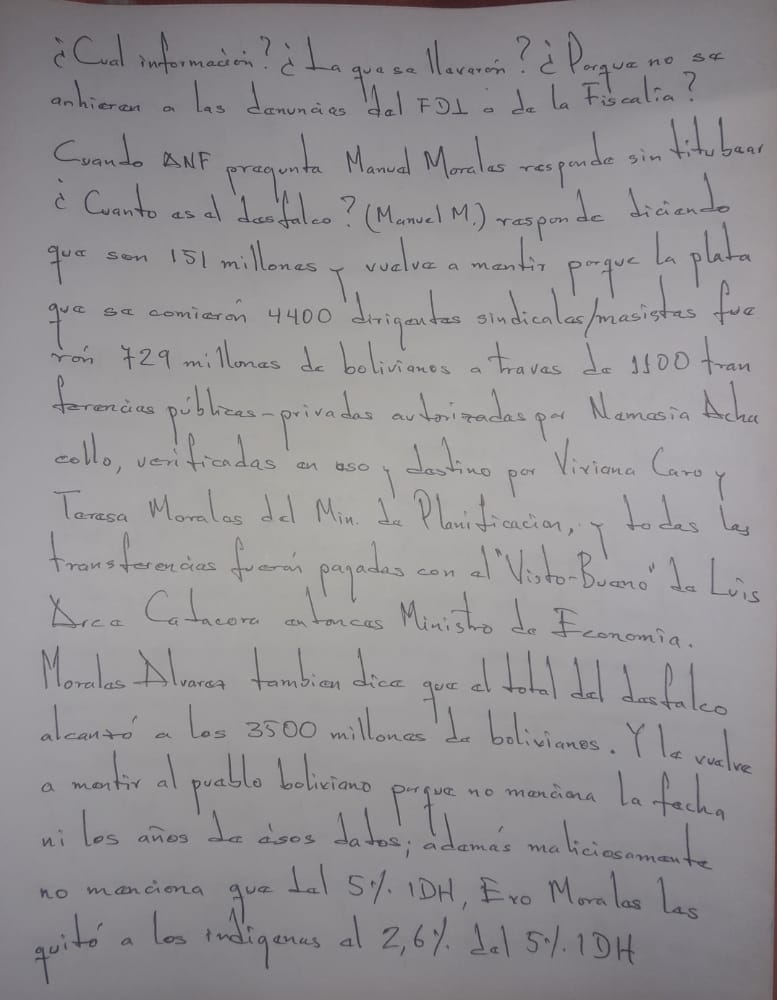 ¿Cual información? ¿La que se llevarón? ¿Porque no se
anhieren a las denuncias del FDI o de la Fiscalía?
Cuando ANF pregunta Manuel Morales responde sin titubear
¿Cuanto es el desfalco? (Manuel M.) responde diciendo
que son 151 millones y vuelve a mentir porque la plata
que se comierón 4400 dirigentes sindicales/masistas fue
rón 729 millones de bolivianos a traves de 1100 tran
ferencias públicas-privadas autorizadas por Nemesia Acha
collo, verificadas en uso y destino por Viviana Caro y
Teresa Morales del Min. de Planificacion, y todas las
transferencias fuerón pagadas con el "Visto-Bueno" de Luis
Arce Catacora entonces Ministro de Economía.
Morales Alvarez tambien dice que el total del desfalco
alcanzó a los 3500 millones de bolivianos. Y le vuelve
a mentir al pueblo boliviano porque no menciona la fecha
ni los años de ésos datos; además maliciosamente
no menciona que del 5% IDH, Evo Morales les
quitó a los indígenas el 2,6% del 5% IDH